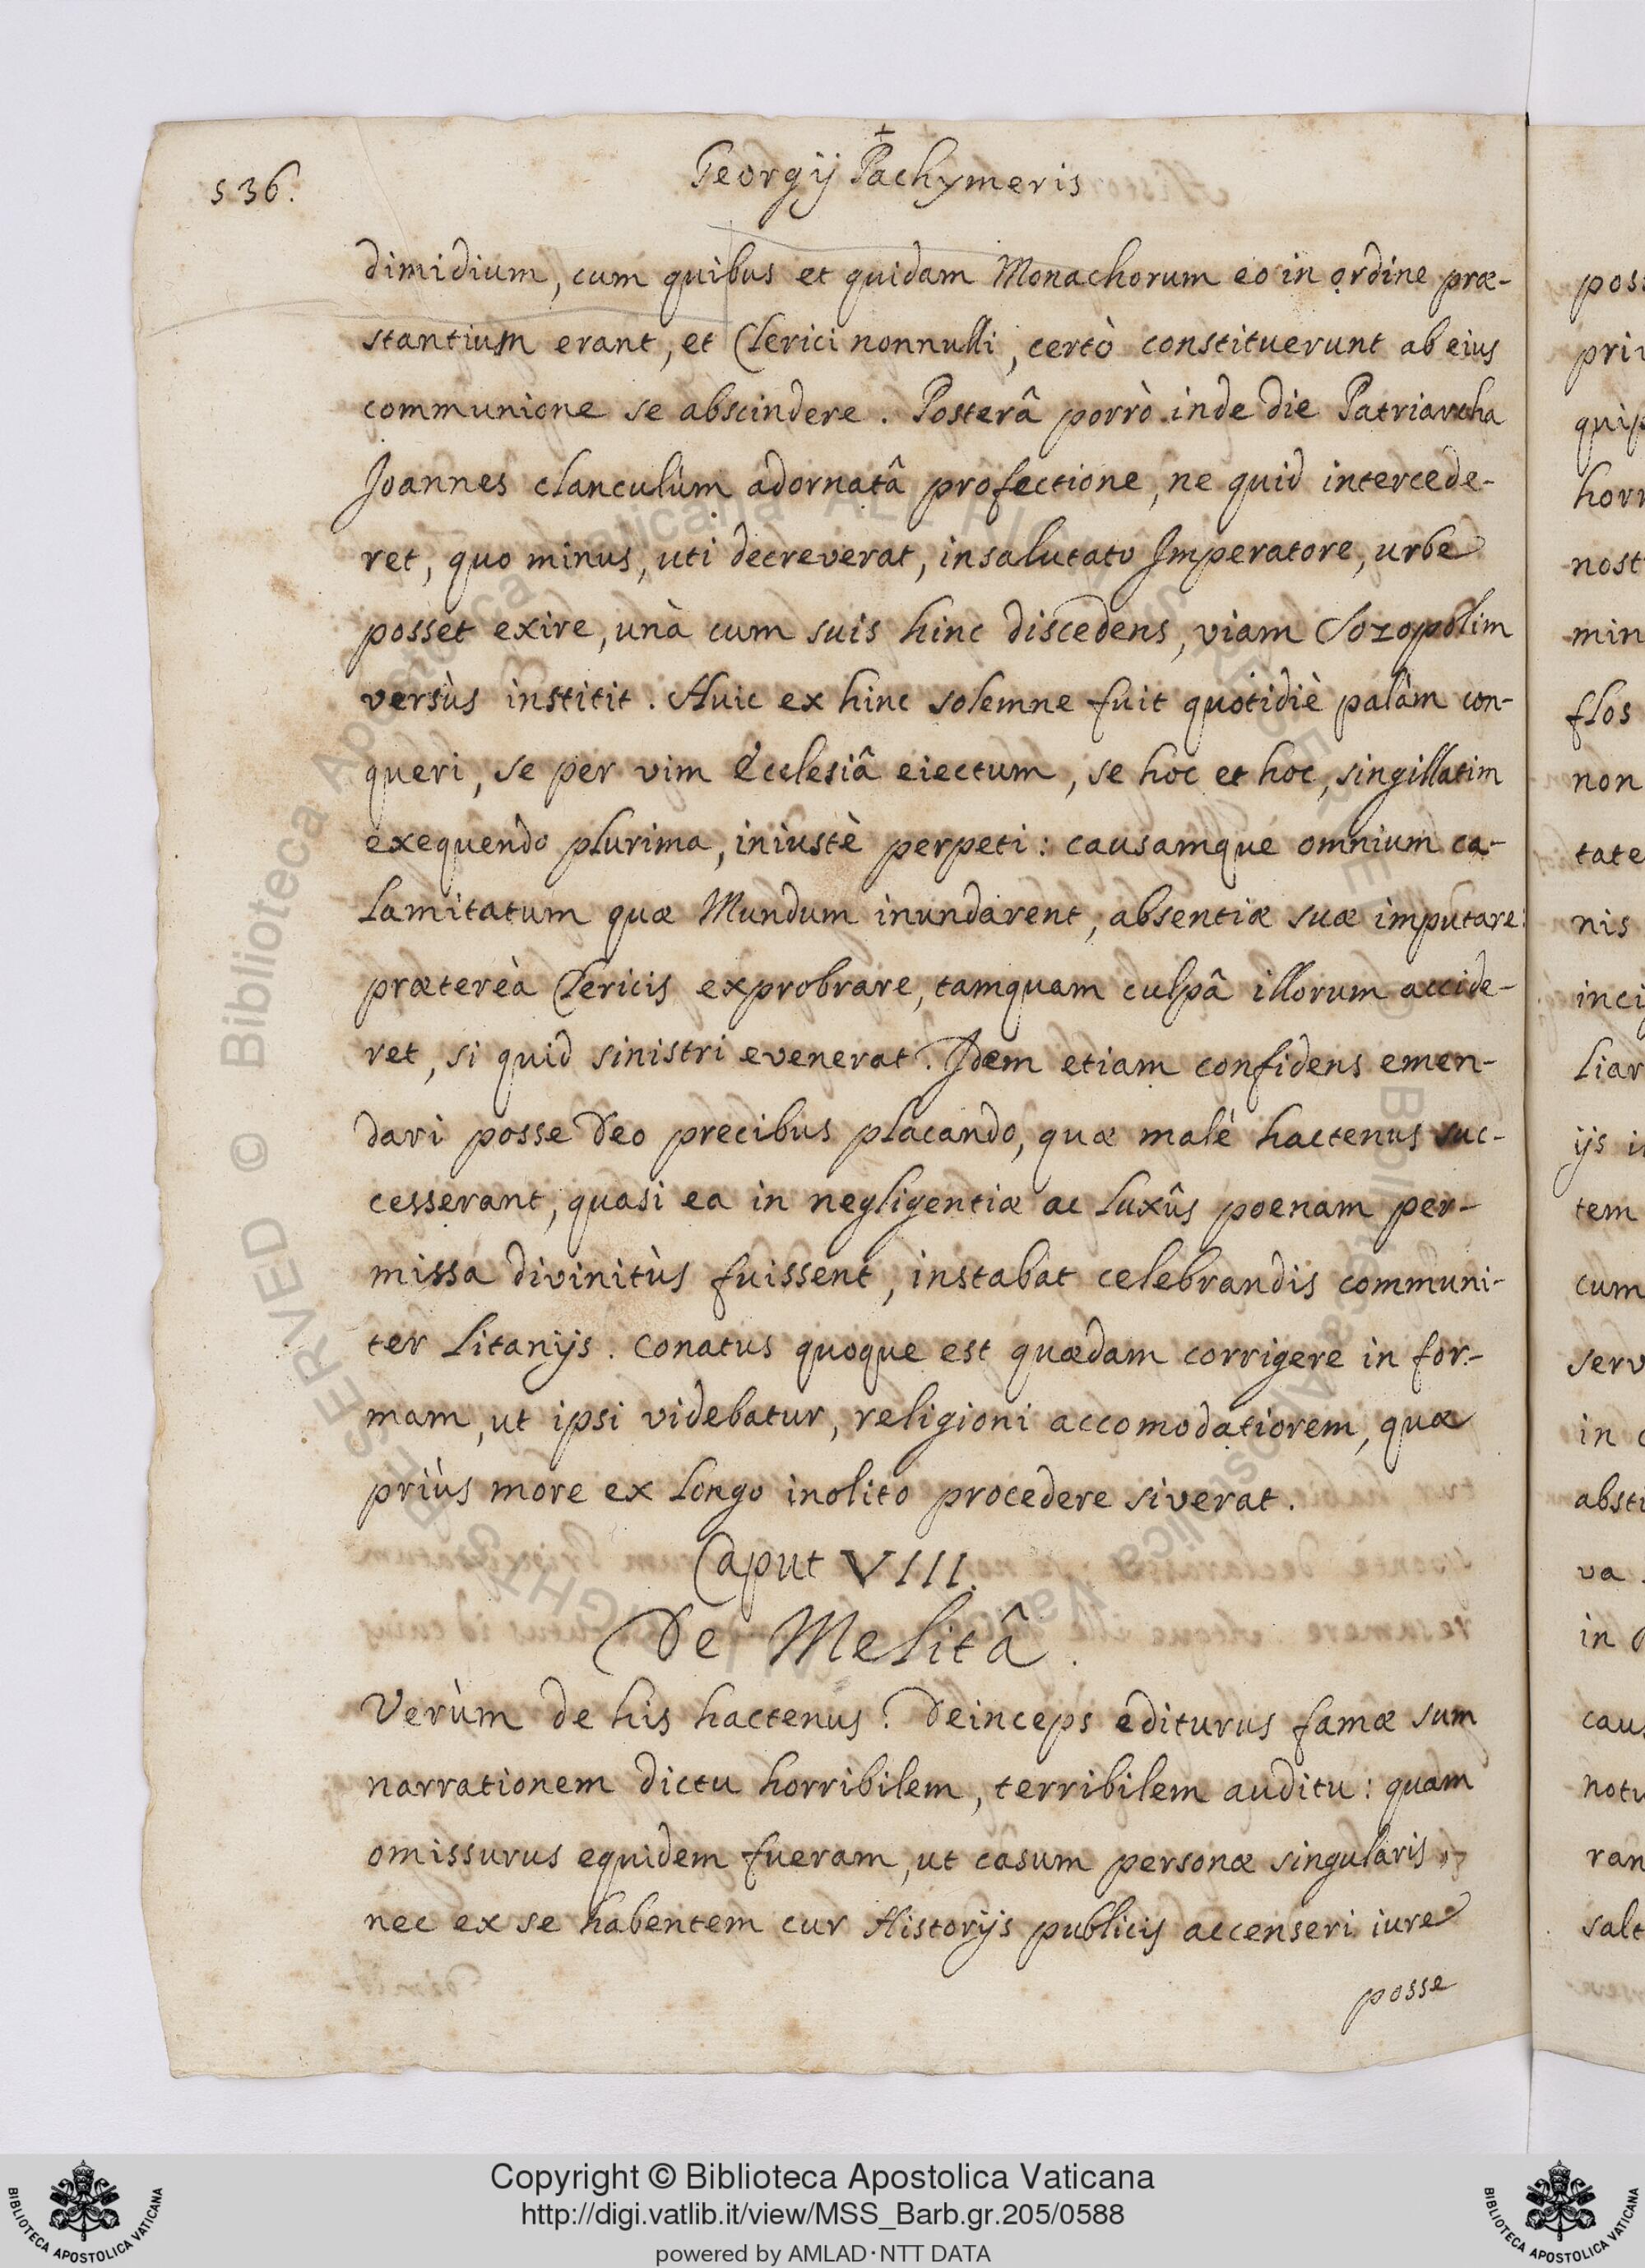 536.
Georgij Pachymeris
dimidium, cum quibus et quidam Monachorum eo in ordine præ-
stantium erant, et Clerici nonnulli, certò constituerunt ab eius
communione se abscindere. Posterâ porrò inde die Patriarcha
Joannes clanculùm adornatâ profectione, ne quid intercede-
ret, quo minus, uti decreverat, insalutato Imperatore, urbe
posset exire, unà cum suis hinc discedens, viam Sozopolim
versùs institit. Huic ex hinc solemne fuit quotidiè palàm con-
queri, se per vim Ecclesiâ eiectum, se hoc et hoc, singillatim
exequendo plurima, iniustè perpeti: causamque omnium ca-
lamitatum quæ Mundum inundarent, absentiæ suæ imputare:
prætereà Clericis exprobrare, tamquam culpâ illorum accide-
ret, si quid sinistri evenerat. Idem etiam confidens emen-
dari posse Deo precibus placando, quæ malè hactenus suc-
cesserant, quasi ea in negligentiæ ac luxûs poenam per-
missa divinitùs fuissent, instabat celebrandis communi-
ter Litanijs. Conatus quoque est quædam corrigere in for-
mam, ut ipsi videbatur, religioni accomodatiorem, quæ
priùs more ex longo inolito procedere siverat.
Caput VIII.
De Melitâ.
Verùm de his hactenus. Deinceps editurus famæ sum
narrationem dictu horribilem, terribilem auditu: quam
omissurus equidem fueram, ut casum personæ singularis,
nec ex se habentem cur Historijs publicis accenseri iure
posse
pos
pri
quip
hor
nost
min
flos
non
tate
nis
inci
liar
ijs i
tem
cum
serv
in
abst
va
in
cau
not
ran
salt
© Biblioteca Apostolica Vaticana ALL RIGHTS RESERVED
© Biblioteca Apostolica Vaticana ALL RIGHTS RESERVED
BIBLIOTECA APOSTOLICA VATICANA
Copyright © Biblioteca Apostolica Vaticana
http://digi.vatlib.it/view/MSS_Barb.gr.205/0588
powered by AMLAD·NTT DATA
BIBLIOTECA APOSTOLICA VATICANA